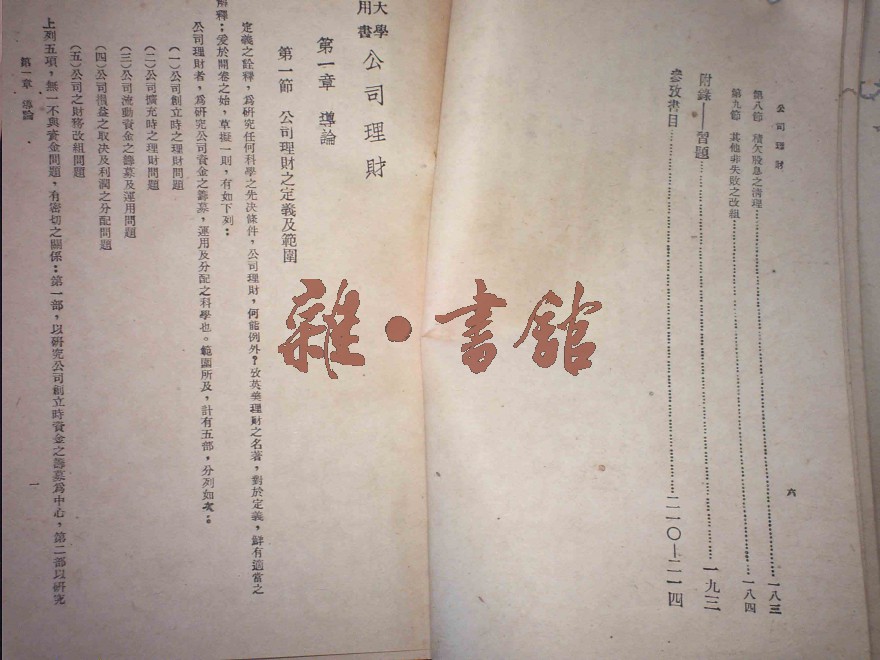 公司理財
第八節 積欠股息之清理……一八三
第九節 其他非失敗之改組……一八四
附錄—習題……一九三
參攷書目……二一〇—二一四
六
大學用書 公司理財
第一章 導論
第一節 公司理財之定義及範圍
定義之詮釋，為研究任何科學之先決條件，公司理財，何能例外？攷英美理財之名著，對於定義，鮮有適當之
解釋；爰於開卷之始，草擬一則，有如下列：
公司理財者，為研究公司資金之籌募，運用及分配之科學也。範圍所及，計有五部，分列如次：
（一）公司創立時之理財問題
（二）公司擴充時之理財問題
（三）公司流動資金之籌募及運用問題
（四）公司損益之取决及利潤之分配問題
（五）公司之財務改組問題
上列五項，無一不與資金問題，有密切之關係：第一部，以研究公司創立時資金之籌募為中心，第二部以研究
第一章 導論
一
雜·書館